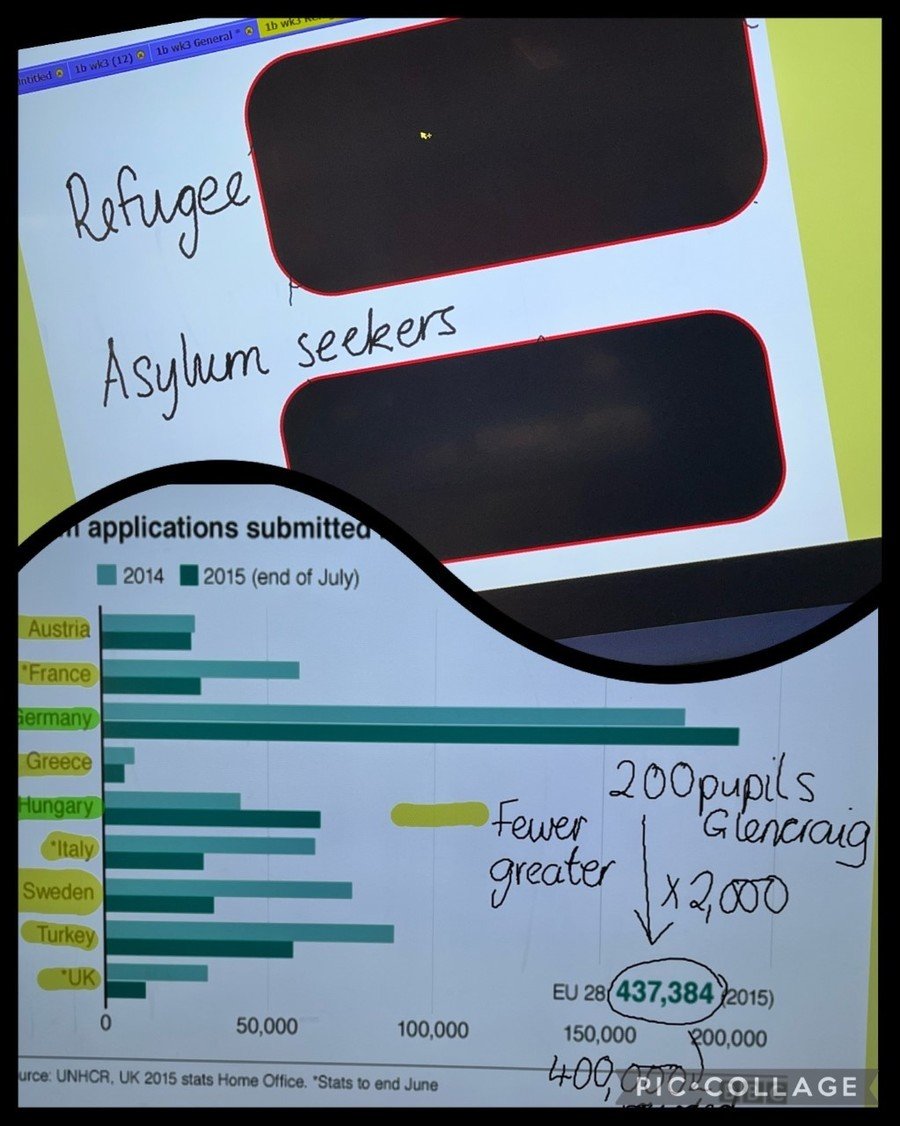 1b wk3 (12)
1b wk3 General *
1b wk3
Refugee
Asylum seekers
applications submitted
2014
2015 (end of July)
Austria
*France
Germany
Greece
Hungary
*Italy
Sweden
Turkey
*UK
Fewer
greater
200 pupils
Glencraig
x 2,000
EU 28 437,384 (2015)
0
50,000
100,000
150,000
200,000
UNHCR, UK 2015 stats Home Office. *Stats to end June
400,000
PIC•COLLAGE